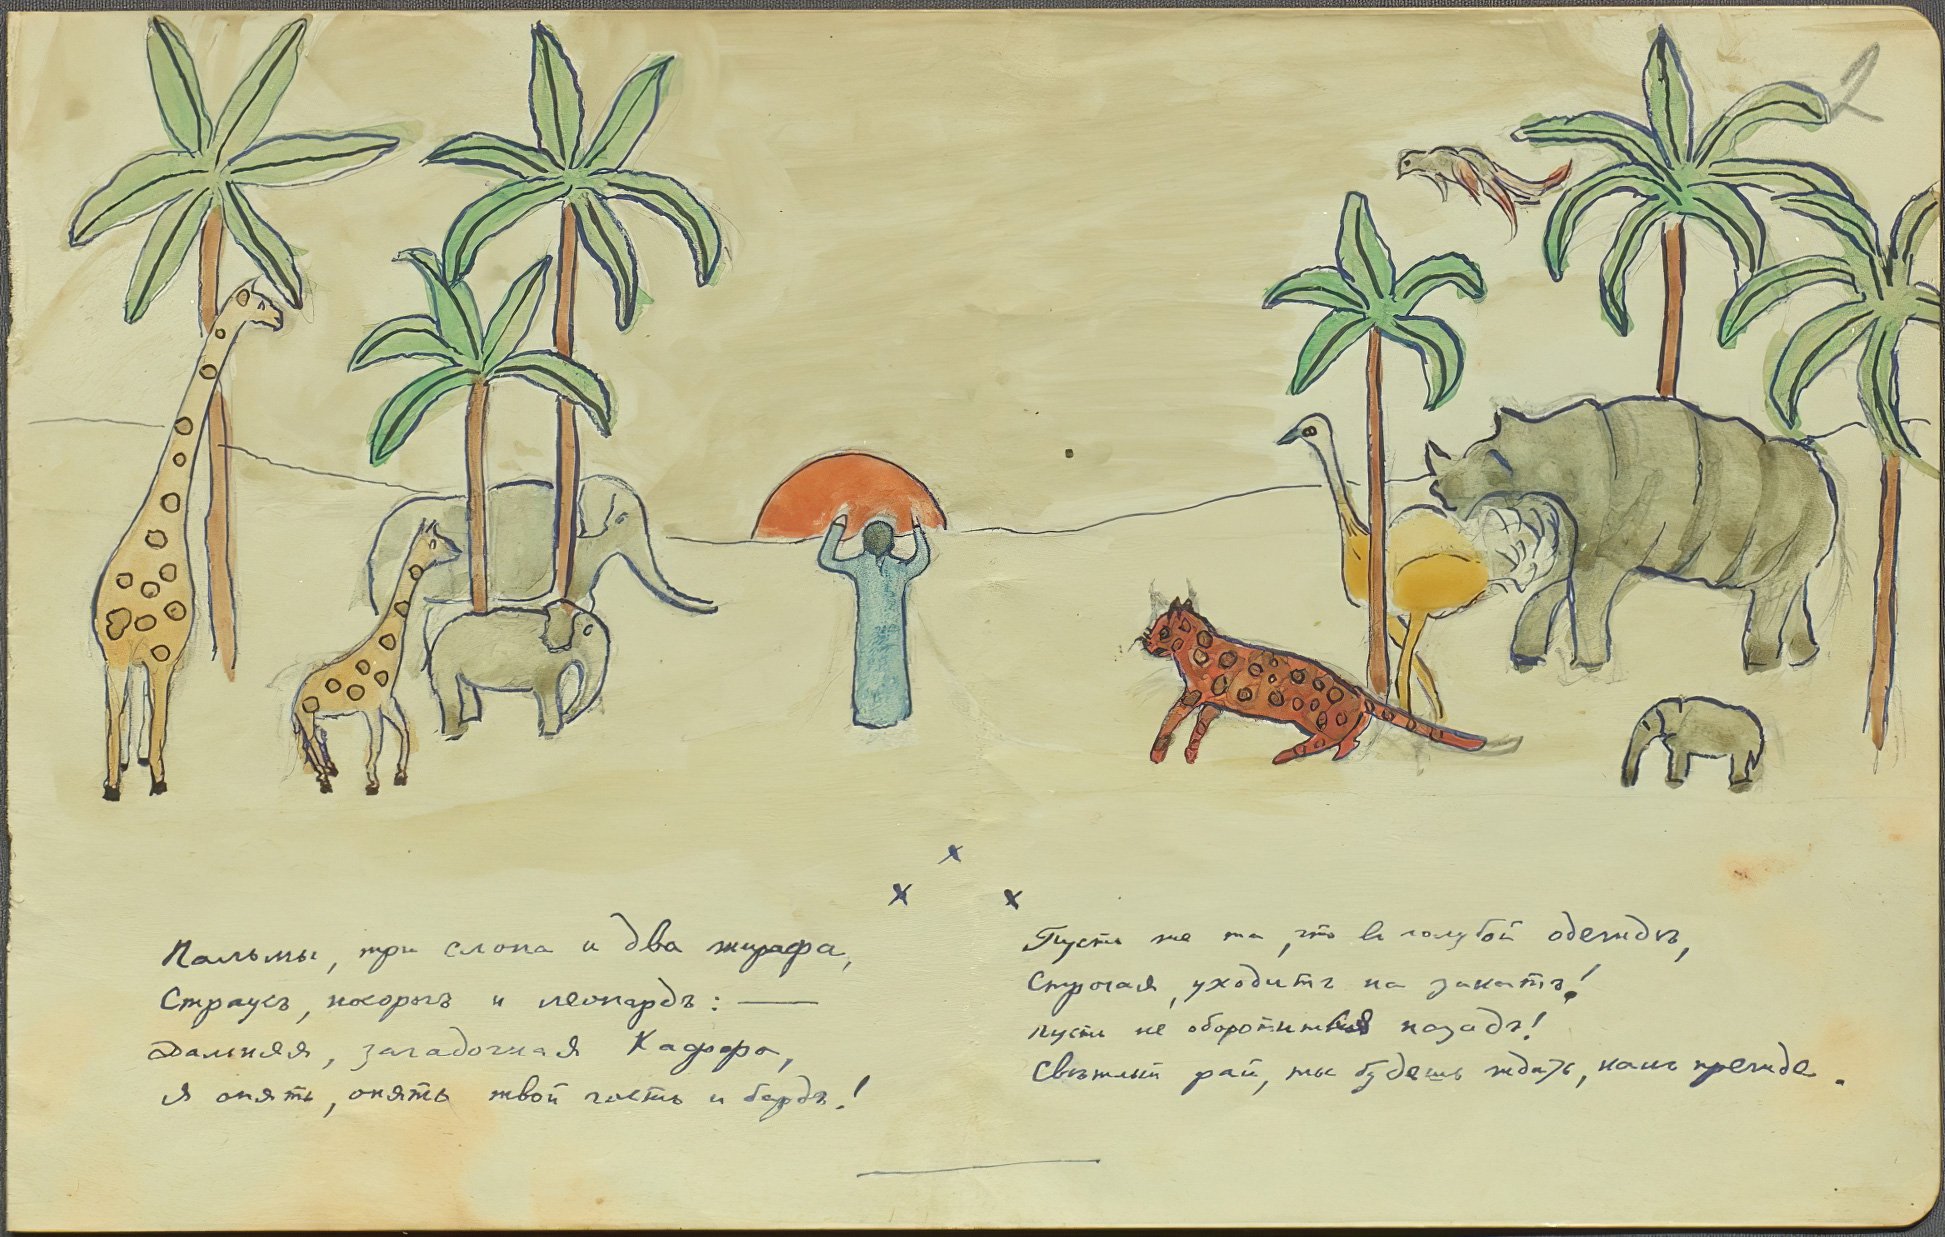 2
Пальмы, три слона и два жирафа,
Страусъ, носорогъ и леопардъ: —
Дальняя, загадочная Каффа,
Я опять, опять твой гость и бардъ!
Пусть же та, что въ голубой одеждѣ,
Строгая, уходитъ на закатъ!
Пусть не оборотится назадъ!
Свѣтлый рай, ты будешь ждать, какъ прежде.